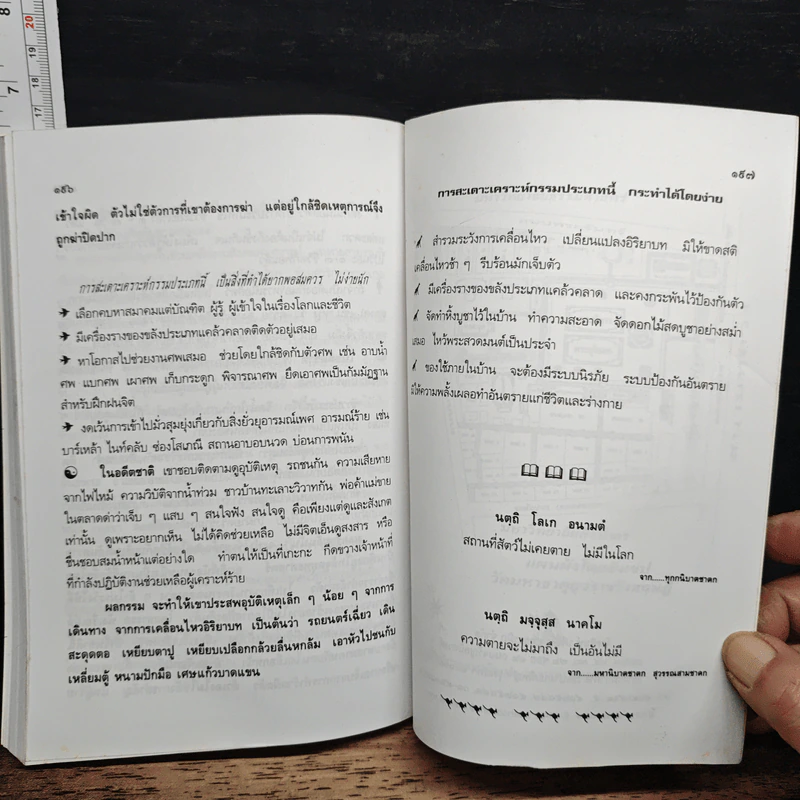 8
7
20
19
18
17
๑๕๖
เข้าใจผิด ตัวไม่ใช่ตัวการที่เขาต้องการฆ่า แต่อยู่ใกล้ชิดเหตุการณ์จึง
ถูกฆ่าปิดปาก
การสะเดาะเคราะห์กรรมประเภทนี้ เป็นสิ่งที่ทำได้ยากพอสมควร ไม่ง่ายนัก
เลือกคบหาสมาคมแต่บัณฑิต ผู้รู้ ผู้เข้าใจในเรื่องโลกและชีวิต
มีเครื่องรางของขลังประเภทแคล้วคลาดติดตัวอยู่เสมอ
หาโอกาสไปช่วยงานศพเสมอ ช่วยโดยใกล้ชิดกับตัวศพ เช่น อาบน้ำ
ศพ แบกศพ เผาศพ เก็บกระดูก พิจารณศพ ยึดเอาศพเป็นกัมมัฏฐาน
สำหรับฝึกฝนจิต
งดเว้นการเข้าไปมั่วสุมยุ่งเกี่ยวกับสิ่งยั่วยุอารมณ์เพศ อารมณ์ร้าย เช่น
บาร์เหล้า ไนท์คลับ ซ่องโสเภณี สถานอาบอบนวด บ่อนการพนัน
ในอดีตชาติ เขาชอบติดตามดูอุบัติเหตุ รถชนกัน ความเสียหาย
จากไฟไหม้ ความวิบัติจากน้ำท่วม ชาวบ้านทะเลาะวิวาทกัน พ่อค้าแม่ขาย
ในตลาดด่าว่าเจ็บ ๆ แสบ ๆ สนใจฟัง สนใจดู คือเพียงแต่ดูและสังเกต
เท่านั้น ดูเพราะอยากเห็น ไม่ได้คิดช่วยเหลือ ไม่มีจิตเอ็นดูสงสาร หรือ
ชื่นชอบสมน้ำหน้าแต่อย่างใด ทำตนให้เป็นที่เกะกะ กีดขวางเจ้าหน้าที่
ที่กำลังปฏิบัติงานช่วยเหลือผู้เคราะห์ร้าย
ผลกรรม จะทำให้เขาประสพอุบัติเหตุเล็ก ๆ น้อย ๆ จากการ
เดินทาง จากการเคลื่อนไหวอิริยาบท เป็นต้นว่า รถยนตร์เฉี่ยว เดิน
สะดุดตอ เหยียบตาปู เหยียบเปลือกกล้วยลื่นหกล้ม เอาหัวไปชนกับ
เหลี่ยมตู้ หนามปักมือ เศษแก้วบาดแขน
๑๕๗
การสะเดาะเคราะห์กรรมประเภทนี้ กระทำได้โดยง่าย
สำรวมระวังการเคลื่อนไหว เปลี่ยนแปลงอิริยาบท มิให้ขาดสติ
เคลื่อนไหวช้า ๆ รีบร้อนมักเจ็บตัว
มีเครื่องรางของขลังประเภทแคล้วคลาด และคงกระพันไว้ป้องกันตัว
จัดทำหิ้งบูชาไว้ในบ้าน ทำความสะอาด จัดดอกไม้สดบูชาอย่างสม่ำ
เสมอ ไหว้พระสวดมนต์เป็นประจำ
ของใช้ภายในบ้าน จะต้องมีระบบนิรภัย ระบบป้องกันอันตราย
มิให้ความพลั้งเผลอทำอันตรายแก่ชีวิตและร่างกาย
นตฺถิ โลเก อนามตํ
สถานที่สัตว์ไม่เคยตาย ไม่มีในโลก
จาก.....ทุกกนิบาตชาดก
นตฺถิ มจฺจุสฺส นาคโม
ความตายจะไม่มาถึง เป็นอันไม่มี
จาก.....มหานิบาตชาดก สุวรรณสามชาดก